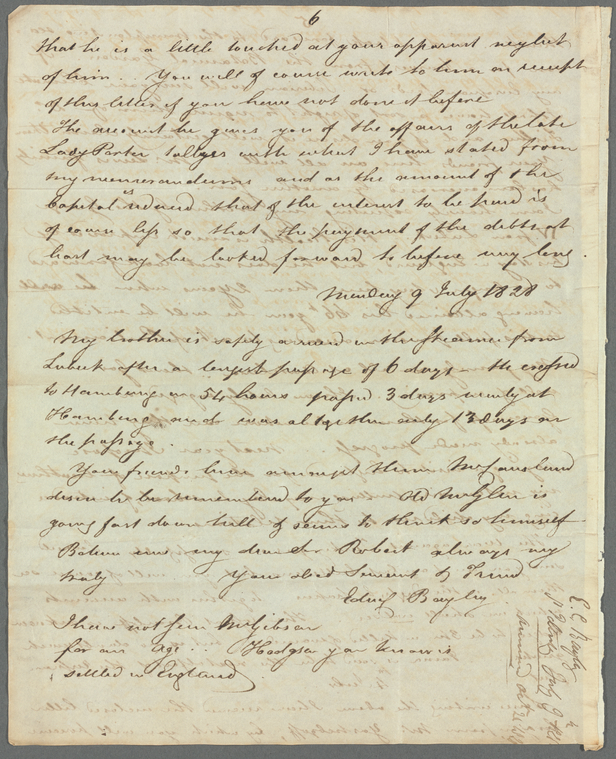 6
that he is a little touched at your apparent neglect
of him .. You will of course write to him on receipt
of this letter if you have not done it before
The account he gives you of the affairs of the late
Lady Porter tallys with what I have stated from
my memorandums and as the amount of the
Capital is reduced that of the interest to be paid is
of course less so that the payment of the debts at
last may be looked forward to before very long
Monday 9 July 1828
My brother is safely arrived in the Steamer from
Lubeck after a passage of 6 days - He crossed
to Hamburg in 54 hours passed 3 days nearly at
Hamburg and was altogether only 13 days on
the passage .
Your friends here amongst them
desire to be remembered to you Old Mr Glen is
going fast down hill & seems to think so himself
Believe me my dear Sir Robert always very
truly Your obed Servant & Friend
Edwd Bayley
I have not seen Mr Gibson
for an age .. Hodgson you know is
settled in England
E. C. Bayley
St Petersbg July 9th
received